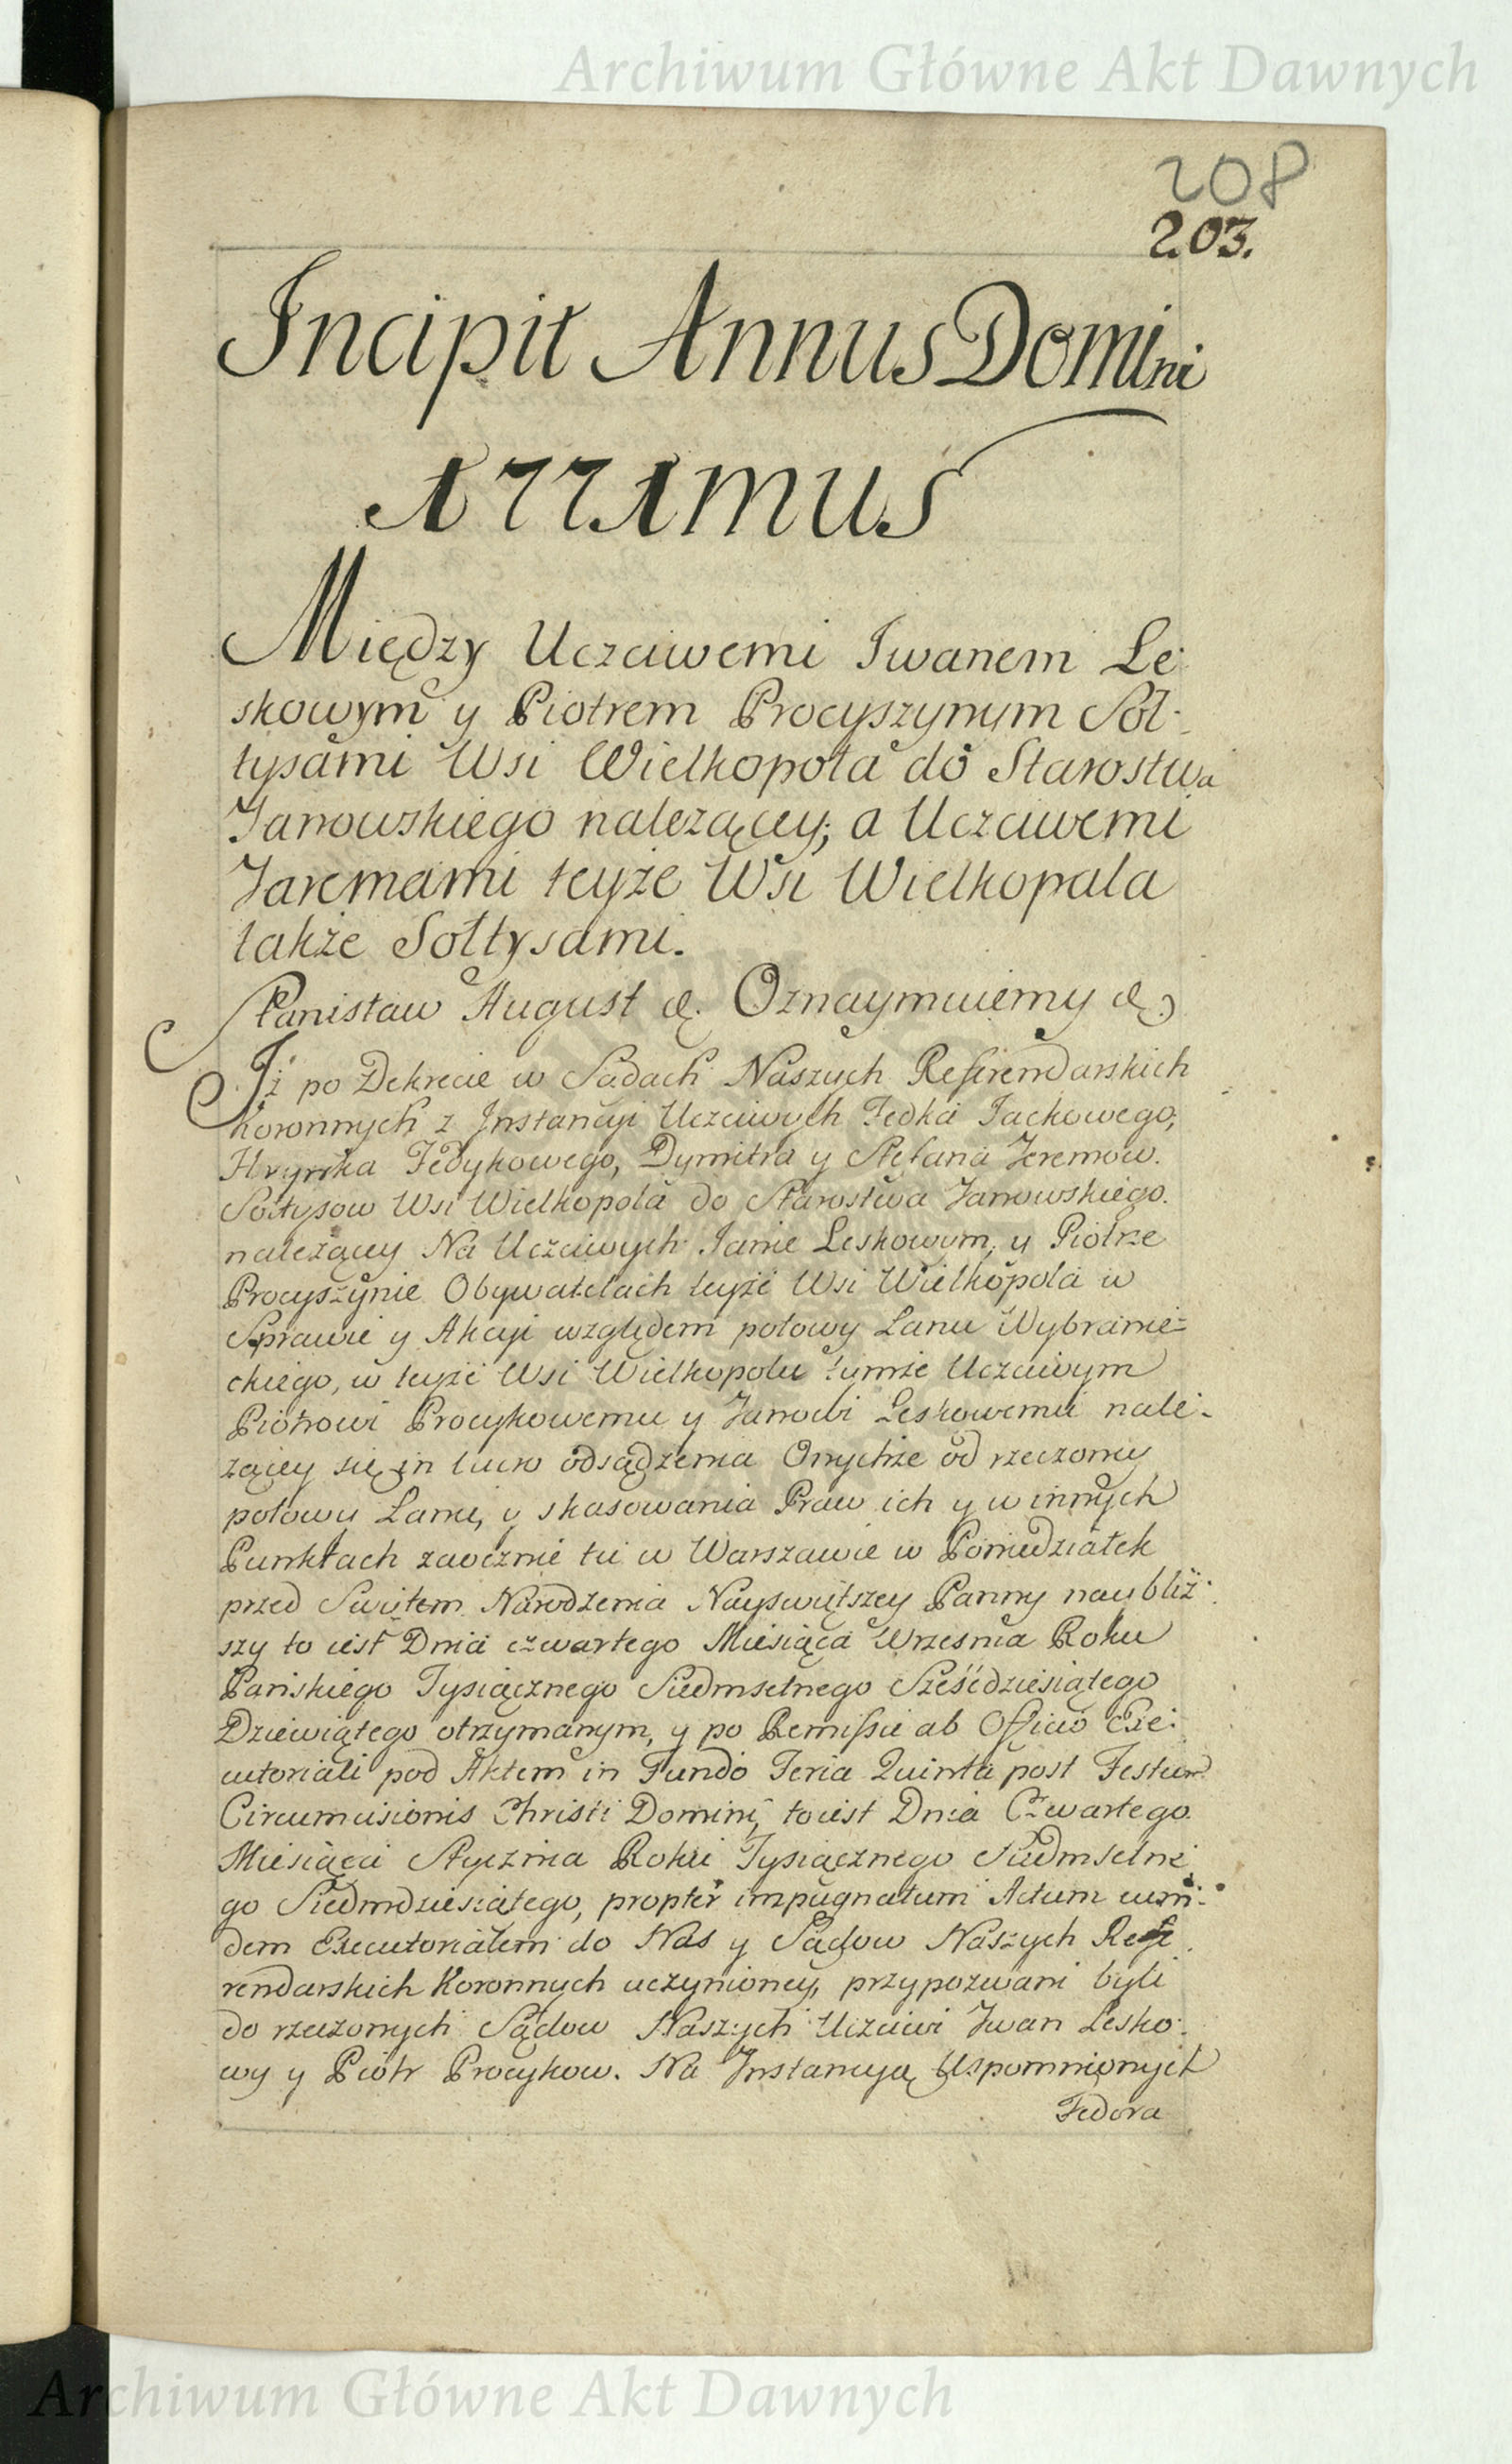 Archiwum Główne Akt Dawnych
208
203.
Incipit Annus Domini
1771mus
Między Uczciwemi Iwanem Le-
skowym y Piotrem Procyszynym Soł-
tysami Wsi Wielkopola do Starostwa
Janowskiego należącey; a Uczciwemi
Jaremami teyże Wsi Wielkopala
także Sołtysami.
Stanisław August &. Oznaymuiemy &.
Iż po Dekrecie w Sądach Naszych Referendarskich
Koronnych z Instancyi Uczciwych Fedka Jackowego,
Hrynka Fedykowego, Dymitra y Stefana Jeremow.
Sołtysow Wsi Wielkopola do Starostwa Janowskiego.
należącey Na Uczciwych Janie Leskowym, y Piotrze
Procyszynie Obywatelach teyże Wsi Wielkopola w
Sprawie y Akcyi względem połowy Łanu Wybranie=
ckiego, w teyże Wsi Wielkopolu tymże Uczciwym
Piotrowi Procykowemu y Janowi Leskowemu nale-
żącey się in lucro odsądzenia Onychże od rzeczoney
połowy Łanu, y skasowania Praw ich y w innych
Punktach zaocznie tu w Warszawie w Poniedziałek
przed Swiętem Narodzenia Nayświętszey Panny naybliż-
szy to iest Dnia czwartego Miesiąca Września Roku
Pańskiego Tysiącznego Siedmsetnego Sześćdziesiątego
Dziewiątego otrzymanym, y po Remissie ab Officio Exe-
cutoriali pod Aktem in Fundo Feria Quinta post Festum
Circumcisionis Christi Domini, to iest Dnia Czwartego
Miesiąca Stycznia Roku Tysiącznego Siedmsetne
go Siedmdziesiątego, propter impugnatum Actum eun-
dem Executorialem do Nas y Sądow Naszych Refe
rendarskich Koronnych uczynioney, przypozwani byli
do rzeczonych Sądow Naszych Uczciwi Iwan Lesko-
wy y Piotr Procykow. Na Instancyą Wspomnionych
Fedora
Archiwum Główne Akt Dawnych